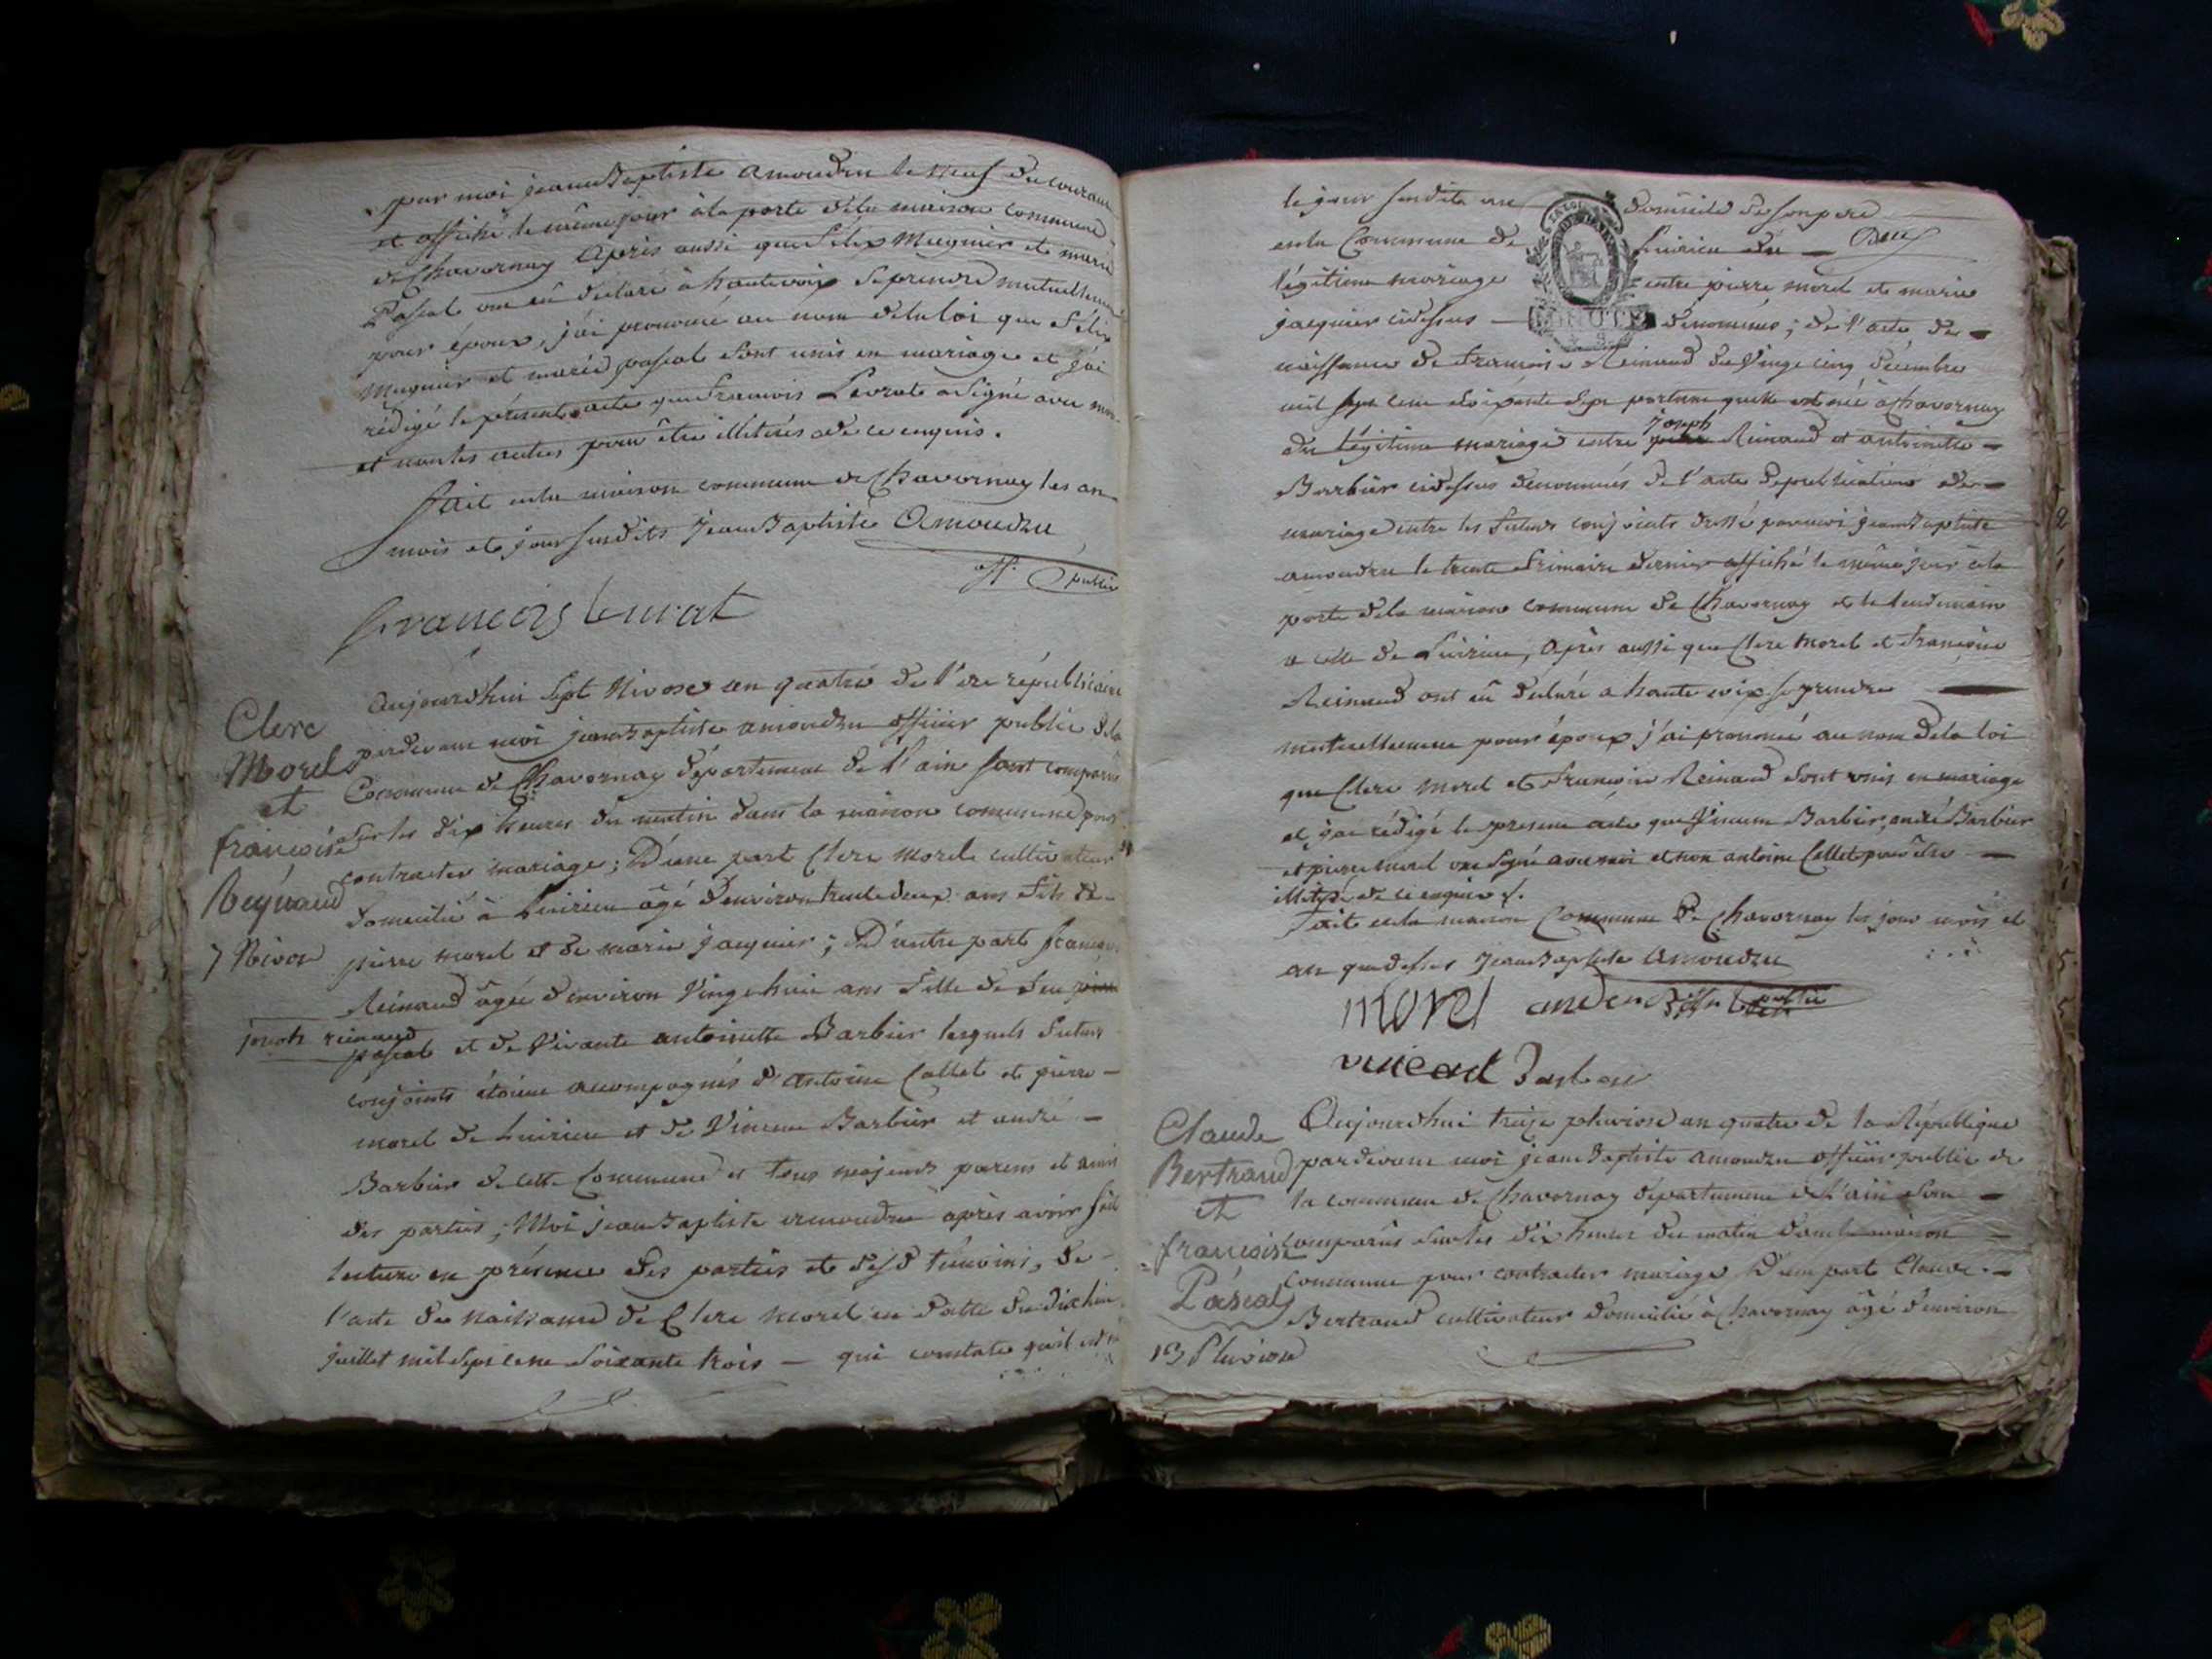 par moi jean Baptiste amoudru le neuf du courant
et affiché le même jour à la porte dela maison commune
de Chavornay Après aussi que felix Mugnier et marie
Pascal ont eû déclaré à hautevoix se prendre mutuellement
pour époux, j'ai prononcé au nom dela loi que félix
Mugnier et marie pascal sont unis en mariage et j'ai
rédigé le présent acte que francois Levrat a signé avec moi
et non les autres pour être illetirés de ce enquis.
fait enla maison commune de Chavornay les an
mois et jour susdits Jean Baptiste Amoudru
off. public
francois levrat
Clerc
Morel
et
françoise
Reynaud
7 Nivose
aujourdhui Sept Nivose an quatre de l'ere républicaine
pardevant moi jean Baptiste amoudru officier public dela
Commune de Chavornay département de l'ain sont comparus
sur les dix heures du matin dans la maison commune pour
contracter mariage; D'une part Clerc Morel cultivateur
domicilié à Luirieu âgé d'environ trente deux ans fils de
pierre morel et de marie jacquier; D'autre part francoise
Reinaud âgée d'environ Vingt huit ans fille de feu pierre
joseph reinaud
pascal et de Vivante antoinette Barbier lesquels futurs
conjoints étoient accompagnés d'antoine Collet et pierre
morel de Luirieu et de Vincent Barbier et andré
Barbier de cette Commune et tous majeurs parens et amis
des parties; Moi jean Baptiste amoudru après avoir fait
lecture en présence des parties et desd témoins, de
l'acte de naissance de Clerc morel en datte du dixhuit
juillet mil sept cent soixante trois — qui constate quil est né
le jour susdit au domicile de son pere
enla Commune de Luirieu du
légitime mariage entre pierre morel et marie
jacquier cidessus dénommés; de l'acte de
naissance de francoise Reinaud du Vingt cinq décembre
mil sept cent soixante sept portant quelle est née à Chavornay
du légitime mariage entre joseph Reinaud et antoinette
Barbier cidessus dénommés de l'acte de publication de
mariage entre les futurs conjoints dressé par moi jean Baptiste
amoudru le trente frimaire dernier affiché le même jour à la
porte dela maison commune de Chavornay et le lendemain
a celle de Luirieu, Après aussi que Clerc Morel et francoise
Reinaud ont eû déclaré a haute voix se prendre
mutuellement pour époux j'ai prononcé au nom dela loi
que Clerc morel et francoise Reinaud sont unis en mariage
et j'ai rédigé le present acte que Vincent Barbier, andré Barbier
et pierre morel ont signé avec moi et non antoine Collet pour être
illitéré de ce enquis.
fait enla maison Commune de Chavornay les jour mois et
an que dessus Jean Baptiste Amoudru
morel public
Claude
Bertrand
et
francoise
Pascal
13 Pluviose
Aujourdhui treize pluviose an quatre de la République
pardevant moi jean Baptiste amoudru officier public de
la commune de Chavornay département de l'ain sont
comparûs sur les dix heures du matin dans la maison
commune pour contracter mariage D'une part Claude
Bertrand cultivateur domicilié à Chavornay âgé d'environ